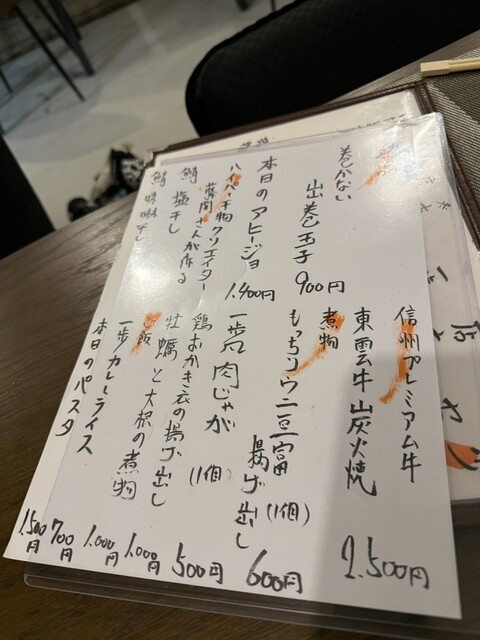 巻かない
出巻玉子 900円
本日のアヒージョ 1.400円
ハイパー干物クリエイター
藤間さんが作る
鯖 塩干し
鯵 味醂干し
信州プレミアム牛
東雲牛 山炭火焼 2.500円
煮物
もっちりウニ豆富 揚げ出し(1個) 600円
一歩 肉じゃが
鶏おかき衣の揚げ出し(1個) 500円
牡蠣と大根の煮物 1.000円
ご飯
一歩カレーライス
本日のパスタ
1.000円
700円
1.500円